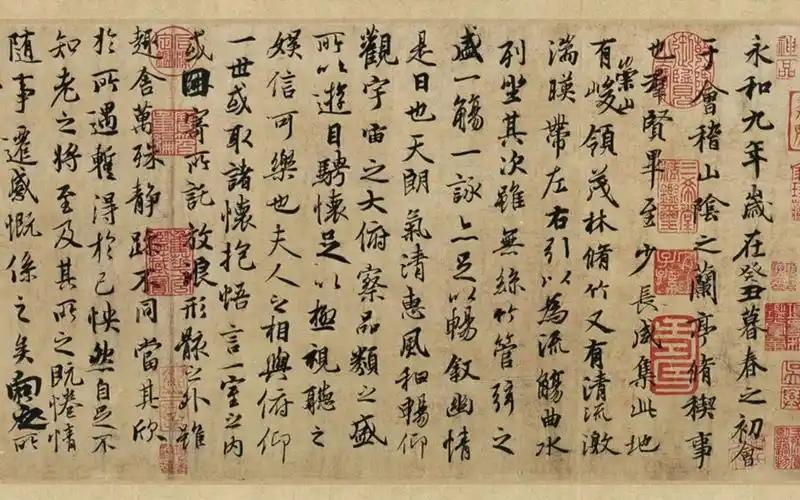 永和九年歲在癸丑暮春之初會
于會稽山陰之蘭亭脩稧事
也羣賢畢至少長咸集此地
有崇山峻領茂林脩竹又有清流激
湍暎帶左右引以為流觴曲水
列坐其次雖無絲竹管弦之
盛一觴一詠亦足以暢叙幽情
是日也天朗氣清惠風和暢仰
觀宇宙之大俯察品類之盛
所以遊目騁懷足以極視聽之
娛信可樂也夫人之相與俯仰
一世或取諸懷抱悟言一室之內
或因寄所託放浪形骸之外雖
趣舍萬殊靜躁不同當其欣
於所遇暫得於己怏然自足不
知老之將至及其所之既惓情
隨事遷感慨係之矣向之所
神品